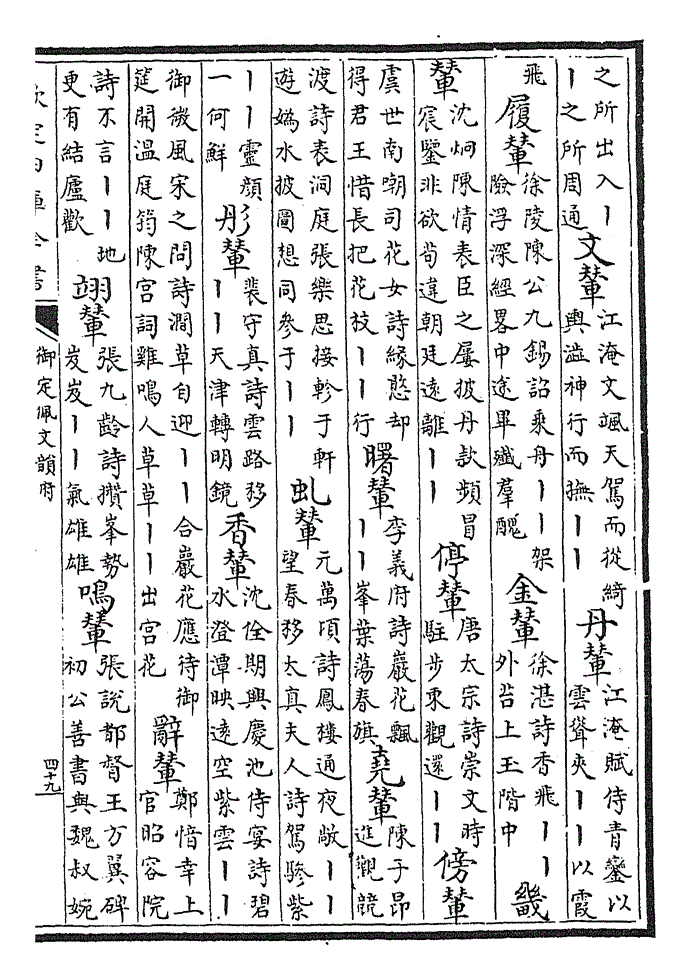 之所出入丨
丨之所周通
文輦
江淹文颯天駕而從綺
輿溢神行而撫丨丨
丹輦
江淹賦侍青鑾以
雲聳夾丨丨以霞
飛
履輦
徐陵陳公九錫詔乘丹丨丨架
險浮深經畧中途畢殲羣醜
金輦
徐湛詩香飛丨丨
外苔上玉階中
畿
輦
沈炯陳情表臣之屢披丹款頻冒
宸鑒非欲苟違朝廷遠離丨丨
停輦
唐太宗詩崇文時
駐步東觀還丨丨
傍輦
虞世南嘲司花女詩緣憨却
得君王惜長把花枝丨丨行
曙輦
李義府詩巖花飄
丨丨峯葉蕩春旗
堯輦
陳子昂
進觀競
渡詩表洞庭張樂思接軫于軒
遊媯水披圖想同參于丨丨
虬輦
元萬頃詩鳳樓通夜敞丨丨
望春移太真夫人詩駕驂紫
丨丨靈顔
一何鮮
彤輦
裴守真詩雲路移
丨丨天津轉明鏡
香輦
沈佺期興慶池侍宴詩碧
水澄潭映遠空紫雲丨丨
御微風宋之問詩澗草自迎丨丨合巖花應待御
筵開溫庭筠陳宮詞雞鳴人草草丨丨出宮花
辭輦
鄭愔幸上
官昭容院
詩不言丨丨地
更有結廬歡
翊輦
張九齡詩攢峯勢
岌岌丨丨氣雄雄
鳴輦
張說都督王方翼碑
初公善書與魏叔婉
欽定四庫全書
御定佩文韻府
四十九